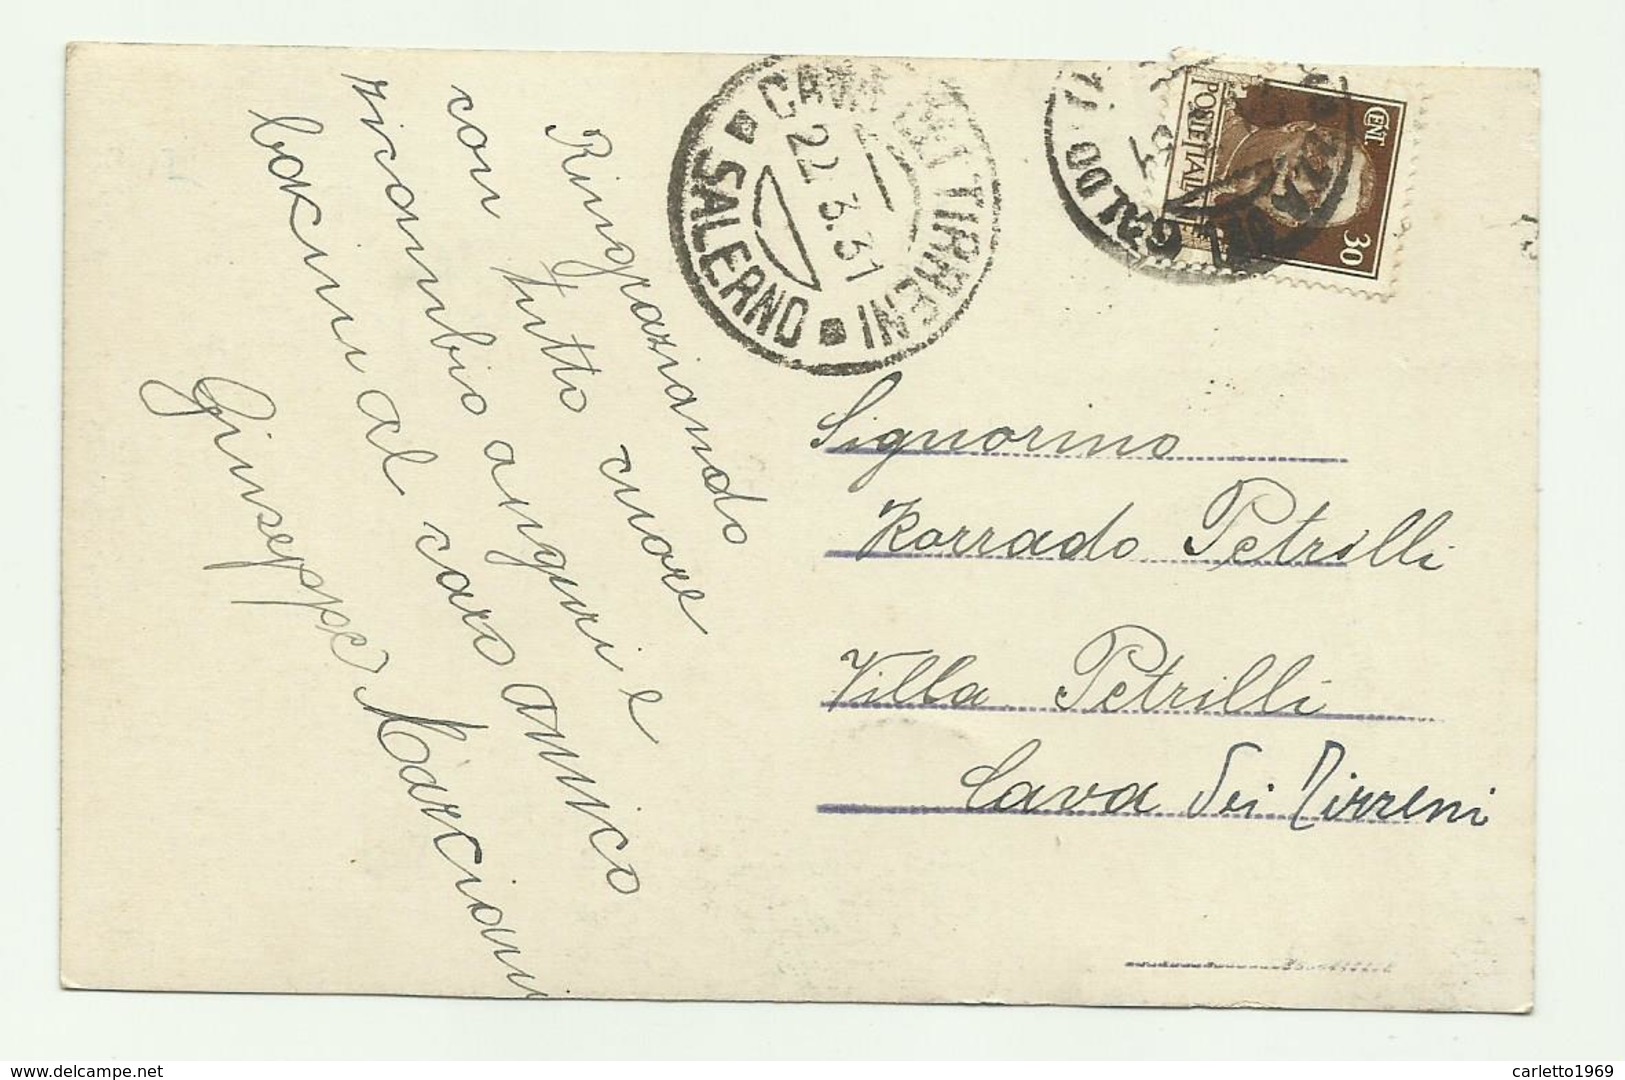 Ringraziando
con tutto cuore
ricambio auguri e
bacini al caro amico
Giuseppe Marciani
CAVA DEI TIRRENI
22.3.31
SALERNO
GALDO
CENT.
30
POSTE ITALIANE
Signorino
Korrado Petrilli
Villa Petrilli
Cava dei Tirreni
www.delcampe.net
carletto1969